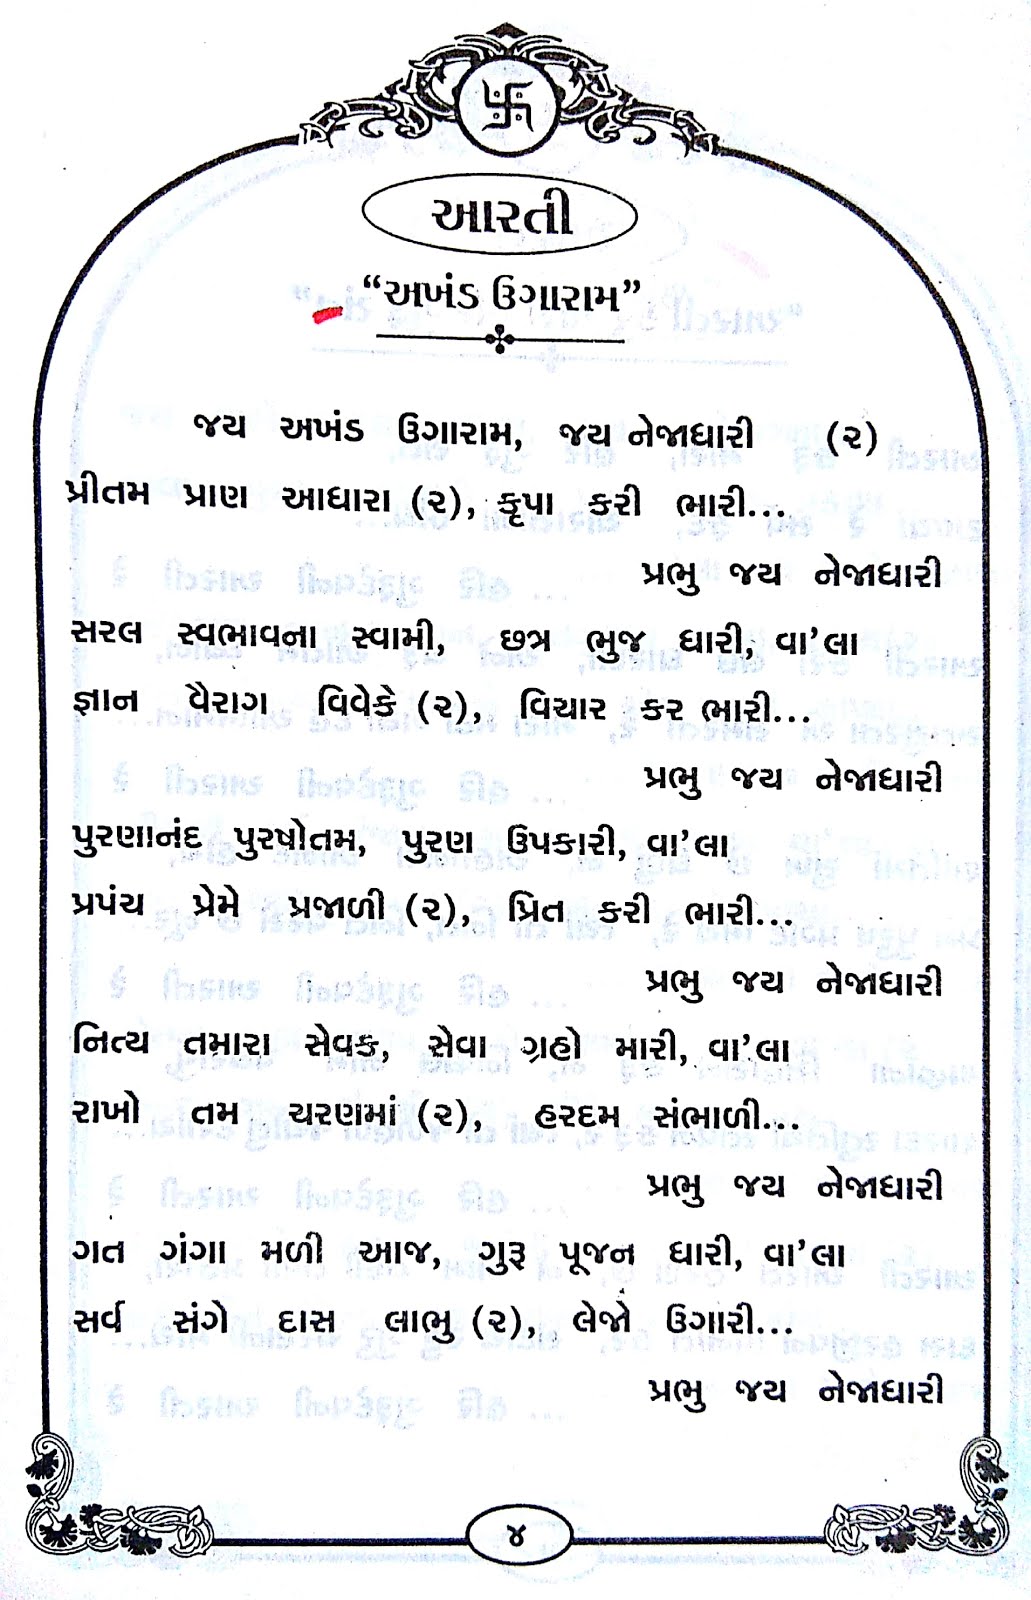 આરતી
“અખંડ ઉગારામ”
જય અખંડ ઉગારામ, જય નેજાધારી (૨)
પ્રીતમ પ્રાણ આધારા (૨), કૃપા કરી ભારી...
પ્રભુ જય નેજાધારી
સરલ સ્વભાવના સ્વામી, છત્ર ભુજ ધારી, વા’લા
જ્ઞાન વૈરાગ વિવેકે (૨), વિચાર કર ભારી...
પ્રભુ જય નેજાધારી
પુરણાનંદ પુરષોતમ, પુરણ ઉપકારી, વા’લા
પ્રપંચ પ્રેમે પ્રજાળી (૨), પ્રિત કરી ભારી...
પ્રભુ જય નેજાધારી
નિત્ય તમારા સેવક, સેવા ગ્રહો મારી, વા’લા
રાખો તમ ચરણમાં (૨), હરદમ સંભાળી...
પ્રભુ જય નેજાધારી
ગત ગંગા મળી આજ, ગુરૂ પૂજન ધારી, વા’લા
સર્વ સંગે દાસ લાભુ (૨), લેજો ઉગારી...
પ્રભુ જય નેજાધારી
૪